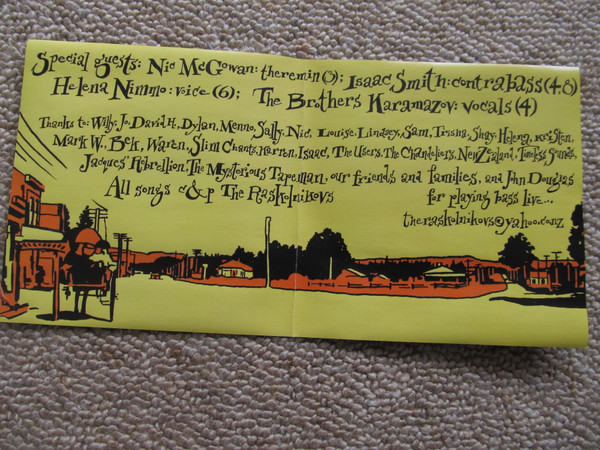 Special guests: Nic McGowan: theremin (3); Isaac Smith: contrabass (4,8)
Helena Nimmo: voice (6); The Brothers Karamazov: vocals (4)
Thanks to: Willy, Jo, David H, Dylan, Menno, Sally, Nic, Louise, Lindsey, Sam, Tessna, Shay, Helena, Kristen,
Mark W., Bek, Waren, Slim Chants, Harren, Isaac, The Users, The Chandeliers, New Zealand, Timeless Sounds,
Jacques' Rebellion, The Mysterious Tapeman, our friends and families, and John Douglas
All songs c&p The Raskolnikovs for playing bass live...
theraskolnikovs@yahoo.co.nz